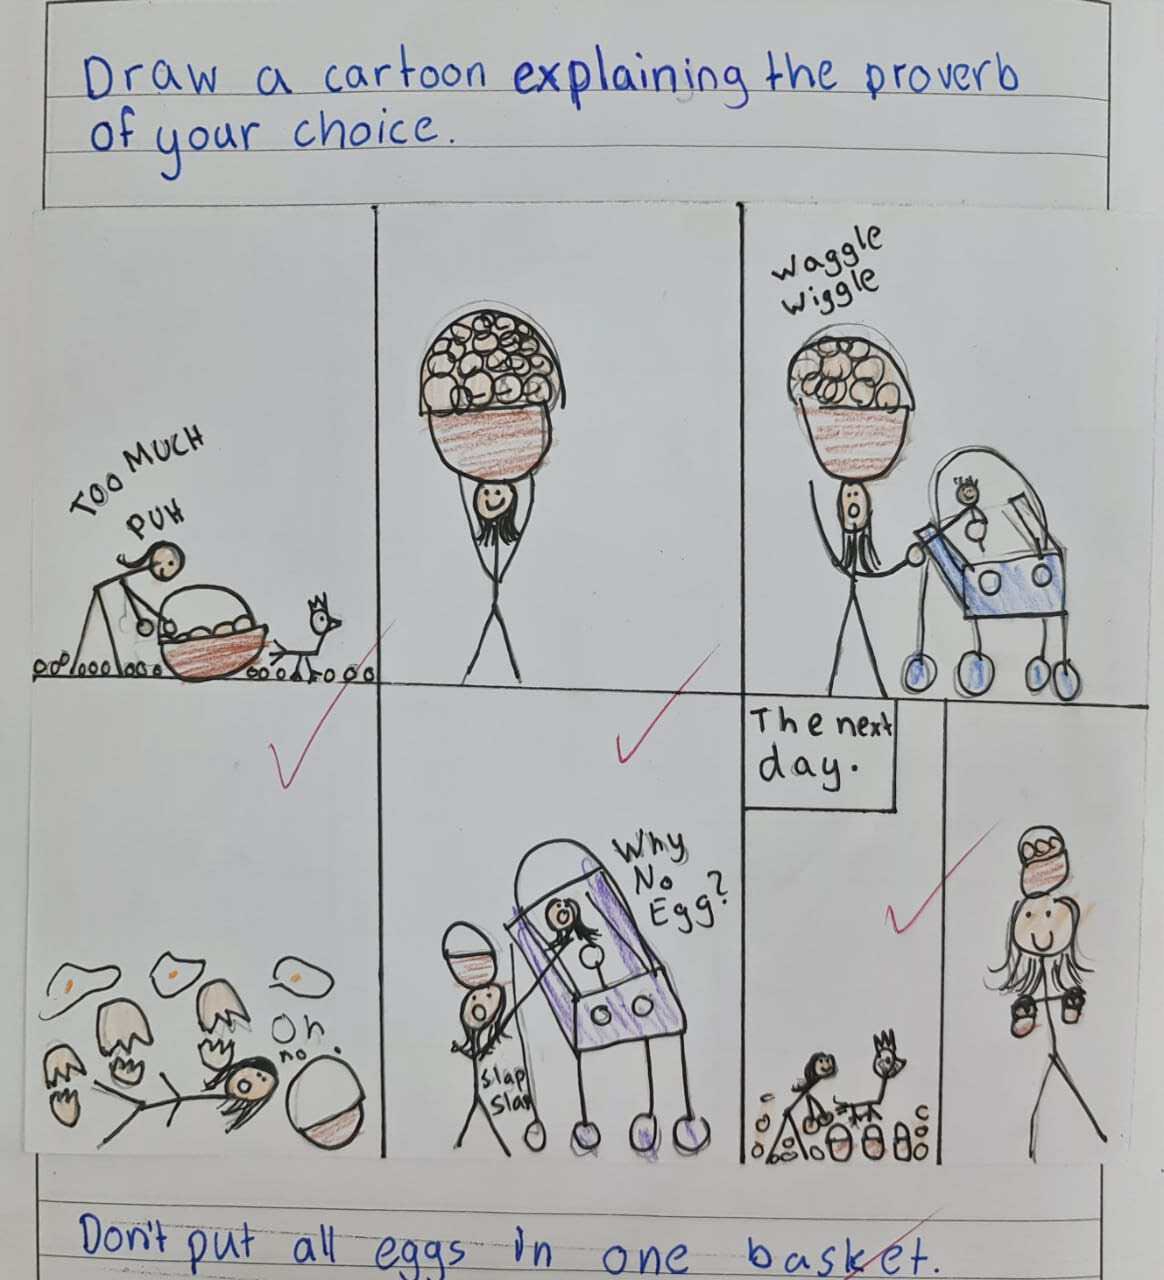 Draw a cartoon explaining the proverb
of your choice.
TOO MUCH
PUH
Waggle
Wiggle
Oh
no.
Why
No
Egg?
Slap
Slap
The next
day.
Don't put all eggs in one basket.